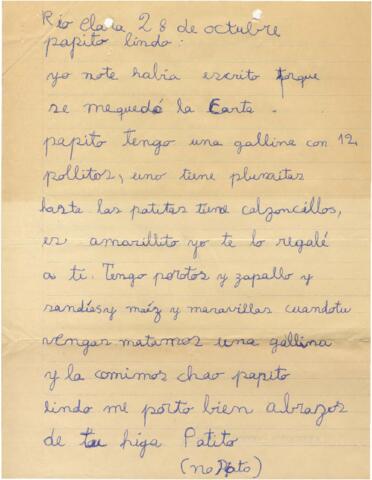 Rio Clara 28 de octubre
papito lindo:
yo note habia escrito porque
se mequedó la Carta.
papito tengo una gallina con 12
pollitos, uno tiene plumitas
hasta las patitas tiene calzoncillos,
es amarillito yo te lo regalé
a ti. Tengo porotos y zapallo y
sandiasy maíz y maravillas cuandotu
vengas matamos una gallina
y la comimos chao papito
lindo me porto bien abrazos
de tu higa Patito
(no Pato)